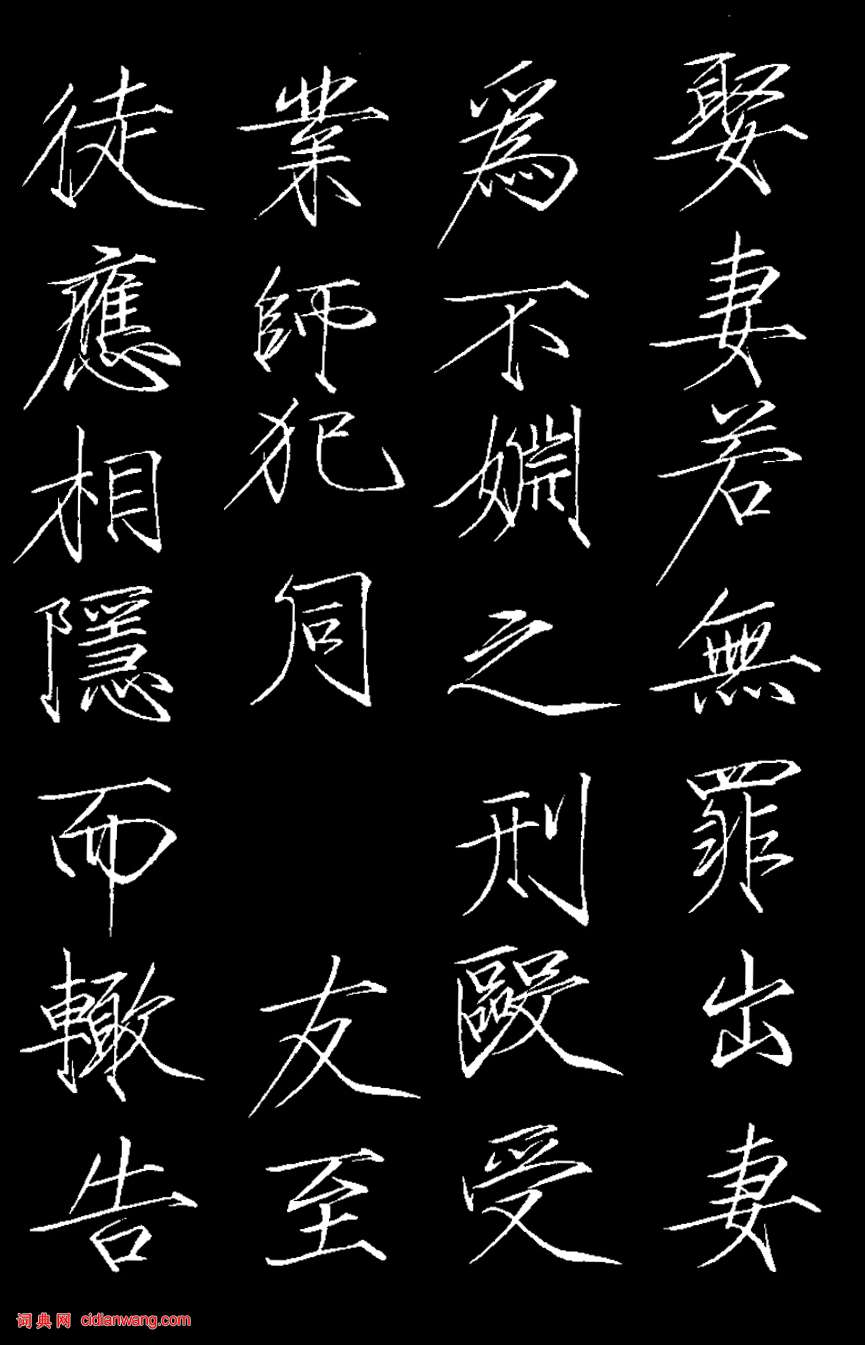 娶妻若無罪出妻
為不嫻之刑毆受
業師犯同 友至
徒應相隱而轍告
词典网 cidianwang.com